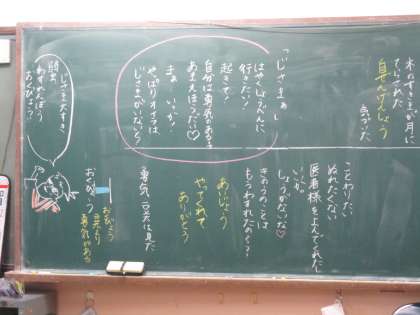 木のすきが月に
てらされた
自分んけしょう
気がつく
「じさまぁ」
はやくしょうべんに
行きたい!
起きて!
自分は勇気がある
あまえぼうだい♡
まぁ いっか!
やっぱりオイラは
じさまがいないと!
じさま大すき
弱虫
わすれんぼう
おくびょう?
ことわりたい
ぬれたくない
医者様をよんでくれた
いいか。
しょうがないな♡
きのうのことは
もうわすれたのかな?
あいじょう
やってくれて
ありがとう
勇気一つ光は見た
おくびょう
おくびょう
豆太より
勇気がある